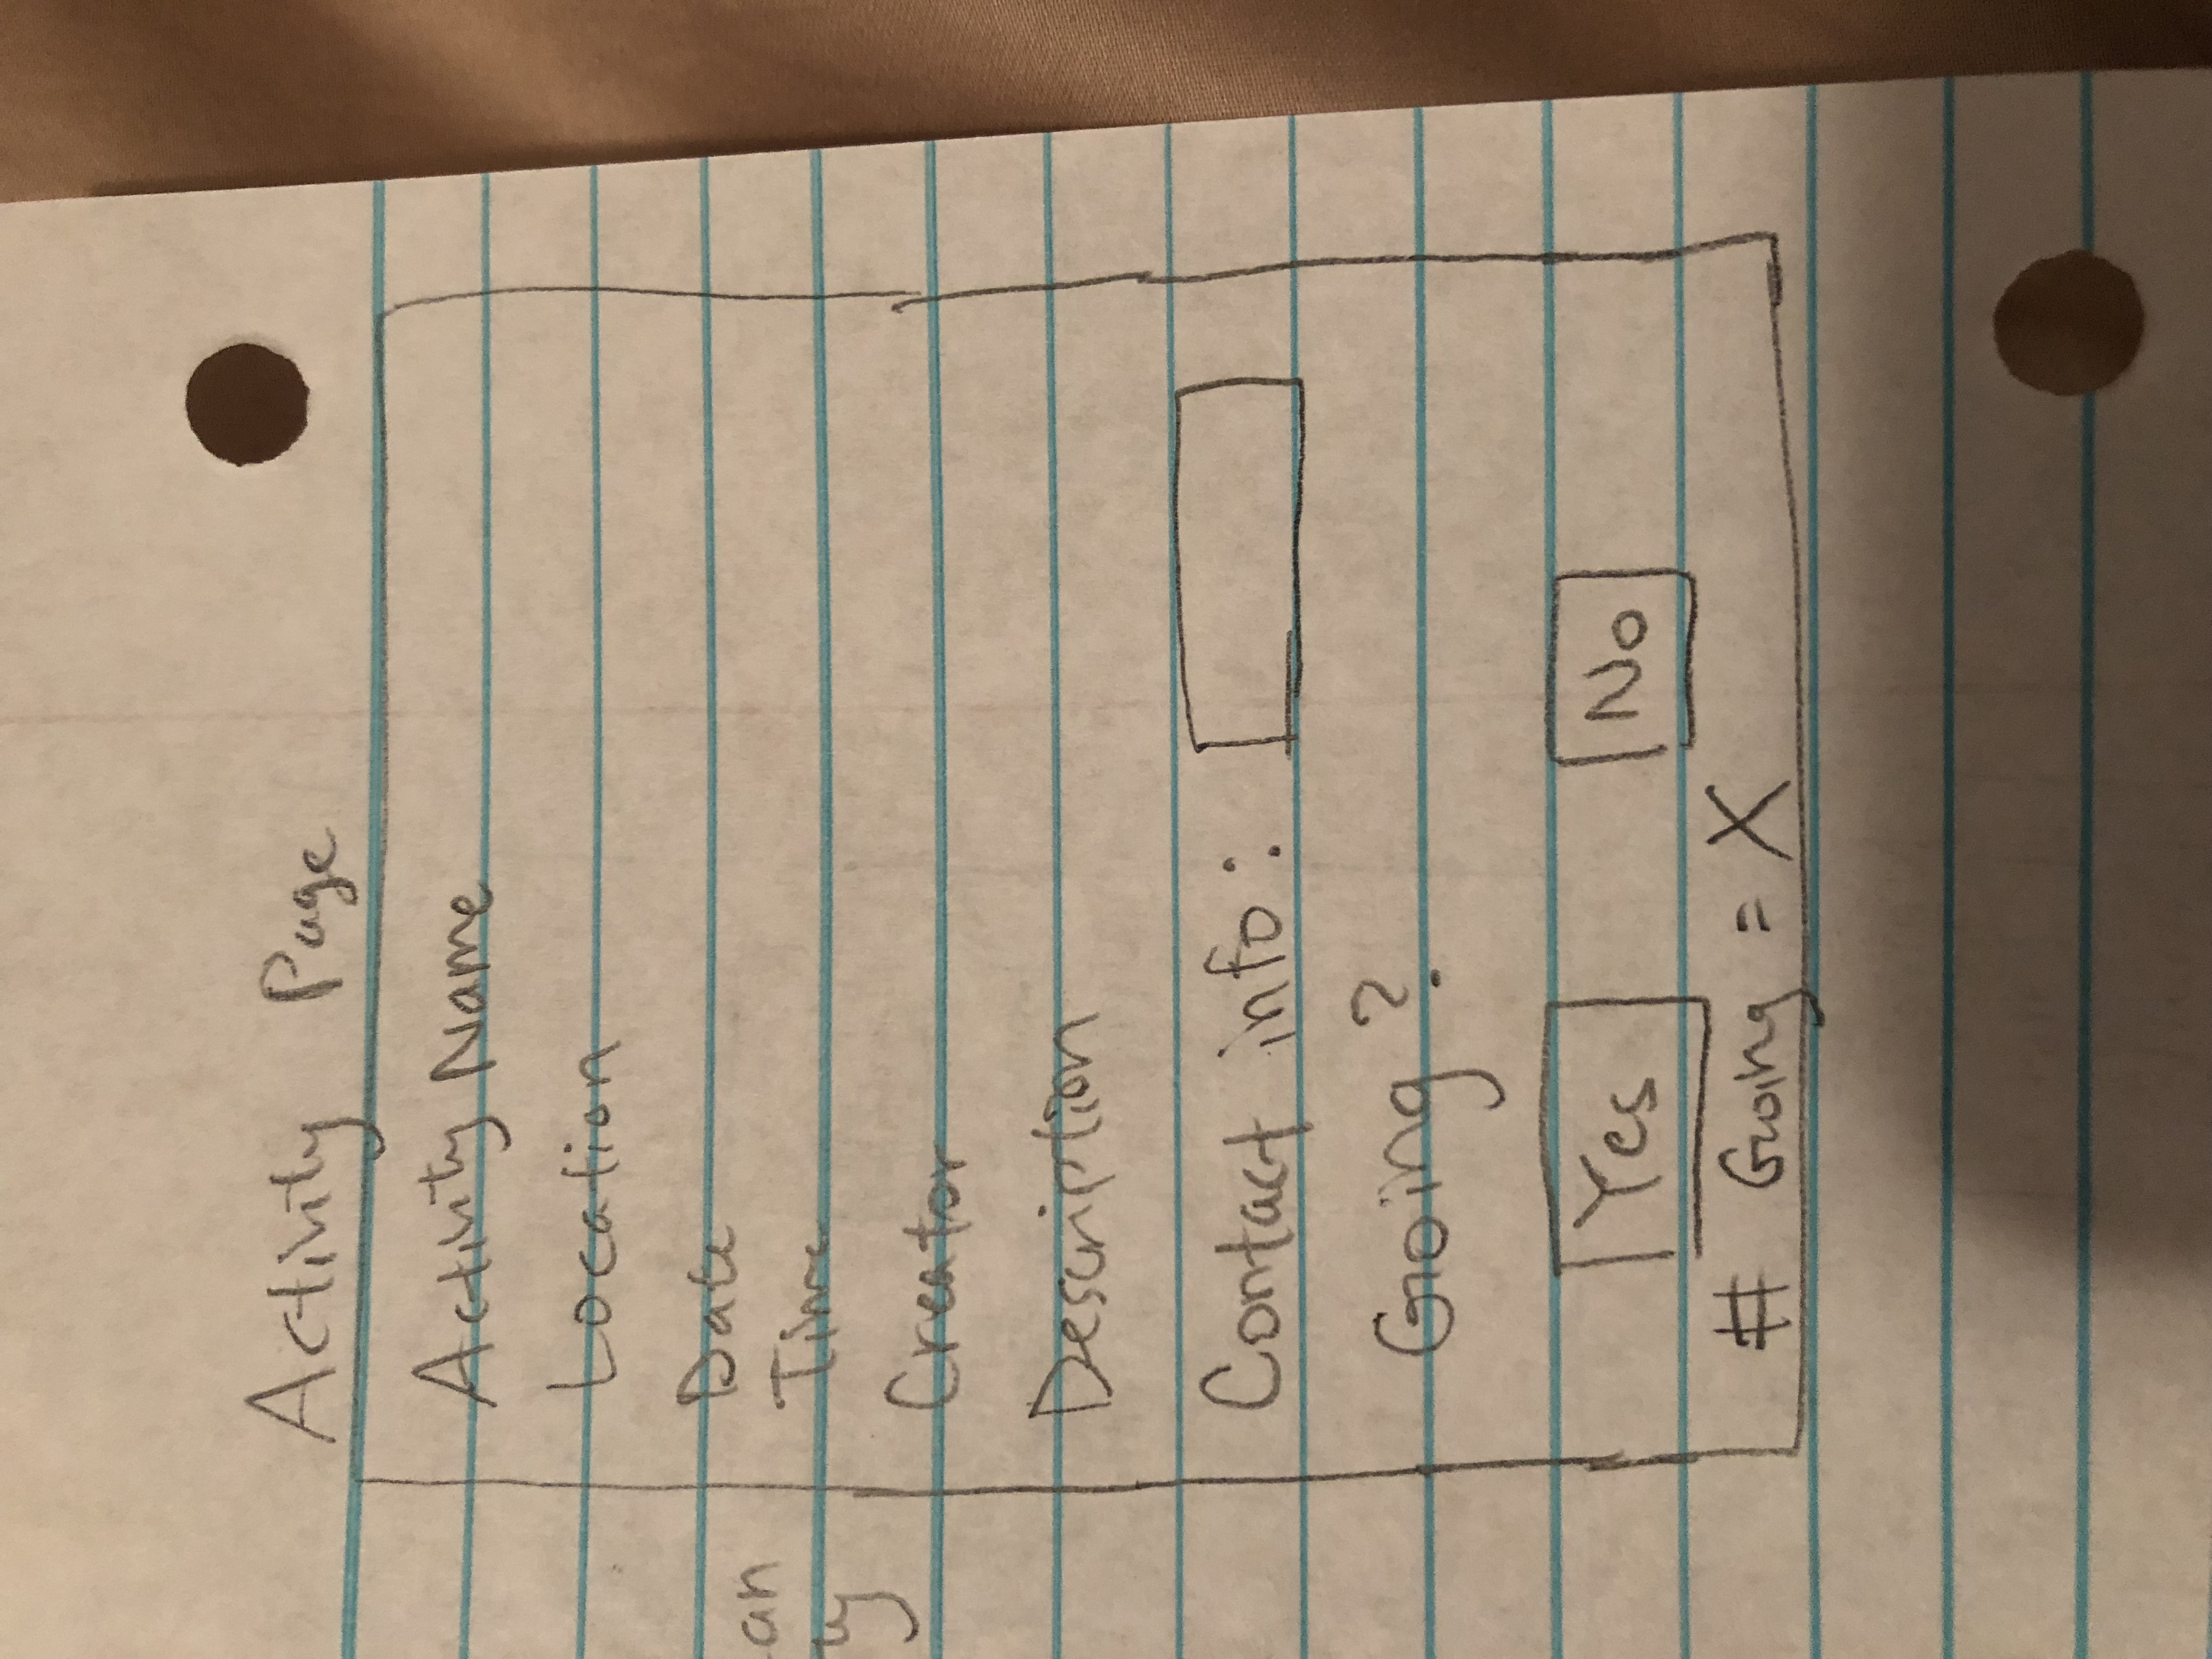 Activity Page
Activity Name
Location
Date
an
Time
ty
Creator
Description
Contact info:
Going?
Yes No
# Going = X